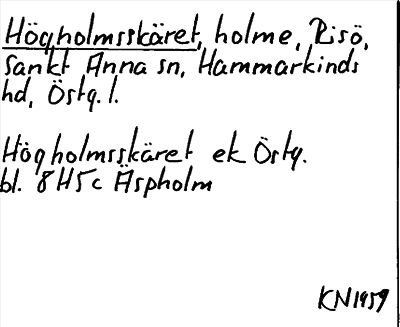 Högholmsskäret, holme, Risö,
Sankt Anna sn, Hammarkinds
hd, Östg. l.
Högholmsskäret ek Östg.
bl. 8H5c Äspholm
KN1959